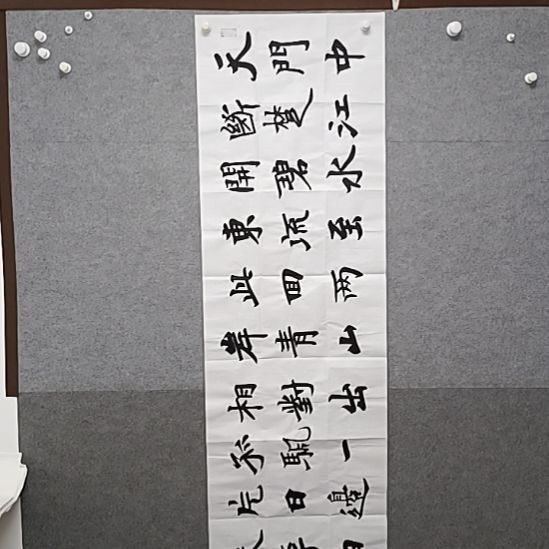 天門中
斷楚江
開碧水
東流至
此回两
岸青山
相對出
孤颿一
片日邊